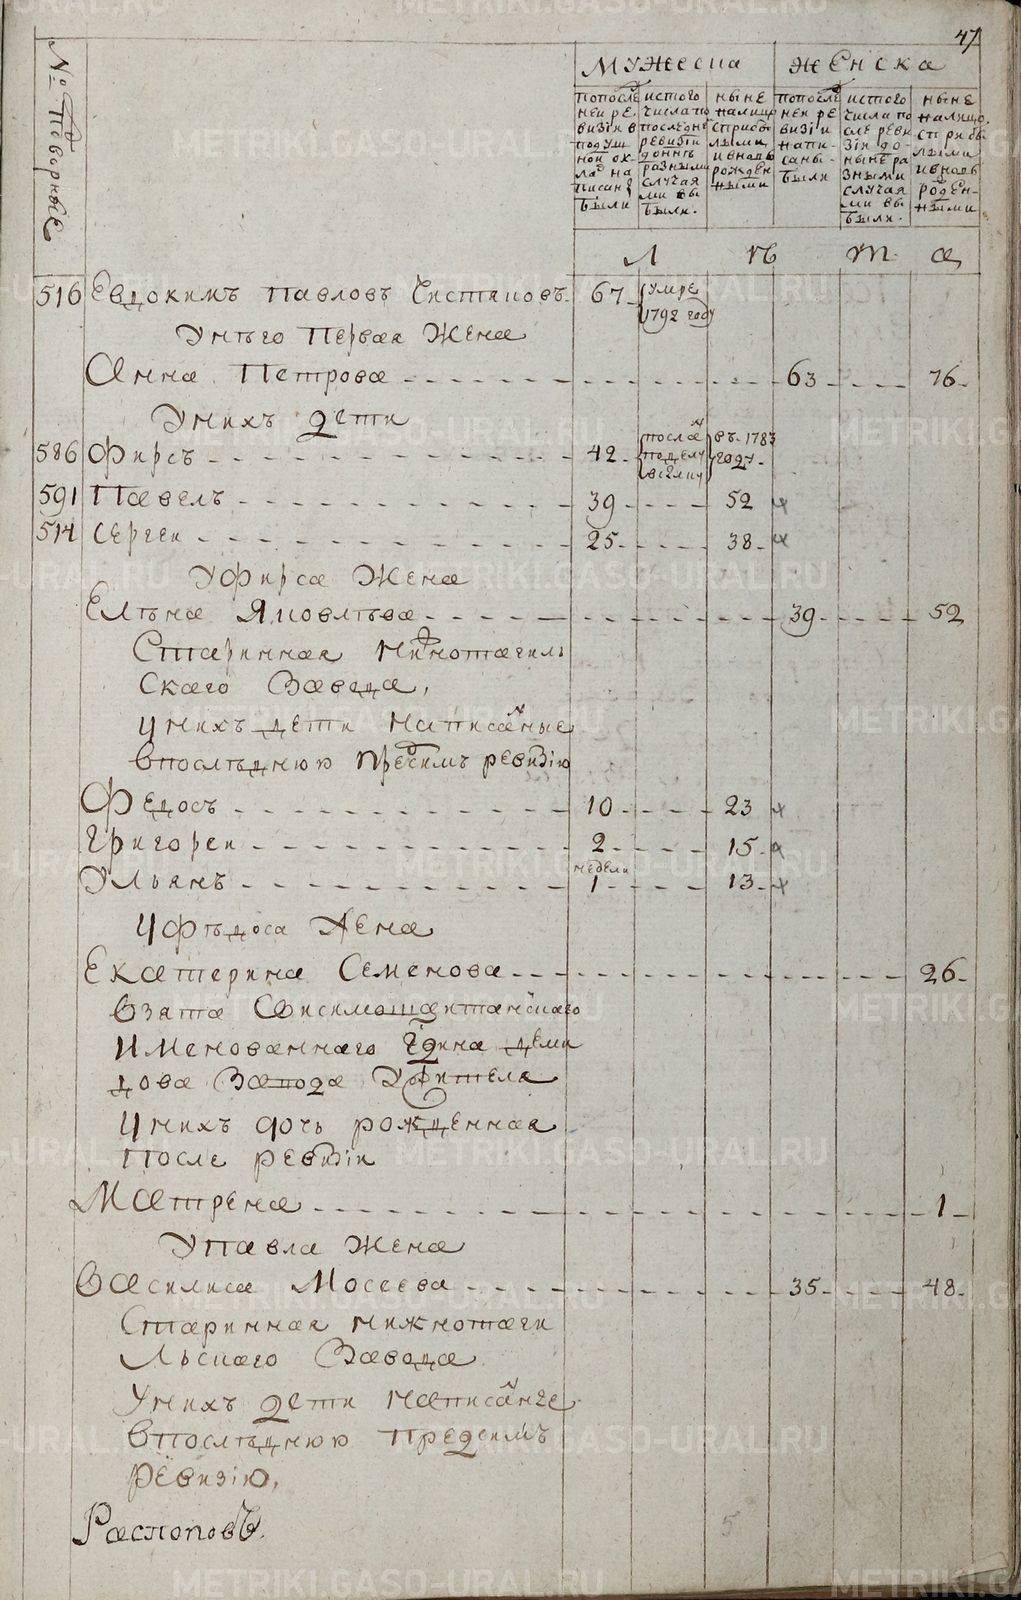 47
№ Поворные
Мужеска
Женска
попосле
ней ре
визiи в
подуш
ной ок
лад на
писаны
были
истого
числа по
последне
ревизiи
донне
разными
случая
ми вы
были.
ныне
налицо
сприбы
лыми
ивновь
рожден
ными
попосле
ней ре
визiи
напи
саны
были
истого
числа по
сле реви
зiи до
ныне ра
зными
случая
ми вы
были.
ныне
налицо.
сприбы
лыми
ивновь
рожден
ными
Л ѣ т а
516 Евдокимъ Павловъ Чистяковъ 67 умре
1792 году
Унего первая жена
Анна Петрова 63 76
Унихъ дети
586 Фирсъ 42 въ 1783
году
591 Павелъ 39 52
514 Сергеи 25 38
Уфирса жена
Елѣна Яковлѣва 39 52
Старинная нижнотагиль
скаго Завода,
унихъ дети написаные
впослѣднюю предсимъ ревизiю
Федосъ 10 23
Григореи 2 15
недели
Ульянъ 1 13
Уфѣдоса жена
Екатерина Семенова 26
взята Свисимошаитанскаго
Именованнаго Гдина Деми
дова Завода жителя
Унихъ дочь рожденная
после ревизiи
Матрена 1
Упавла жена
Василиса Мосеева 35 48
Старинная нижнотаги
льскаго Завода
Унихъ дети написаные
впослѣднюю предсимъ
ревизiю,
Распоповъ.
5
METRIKI.GASO-URAL.RU